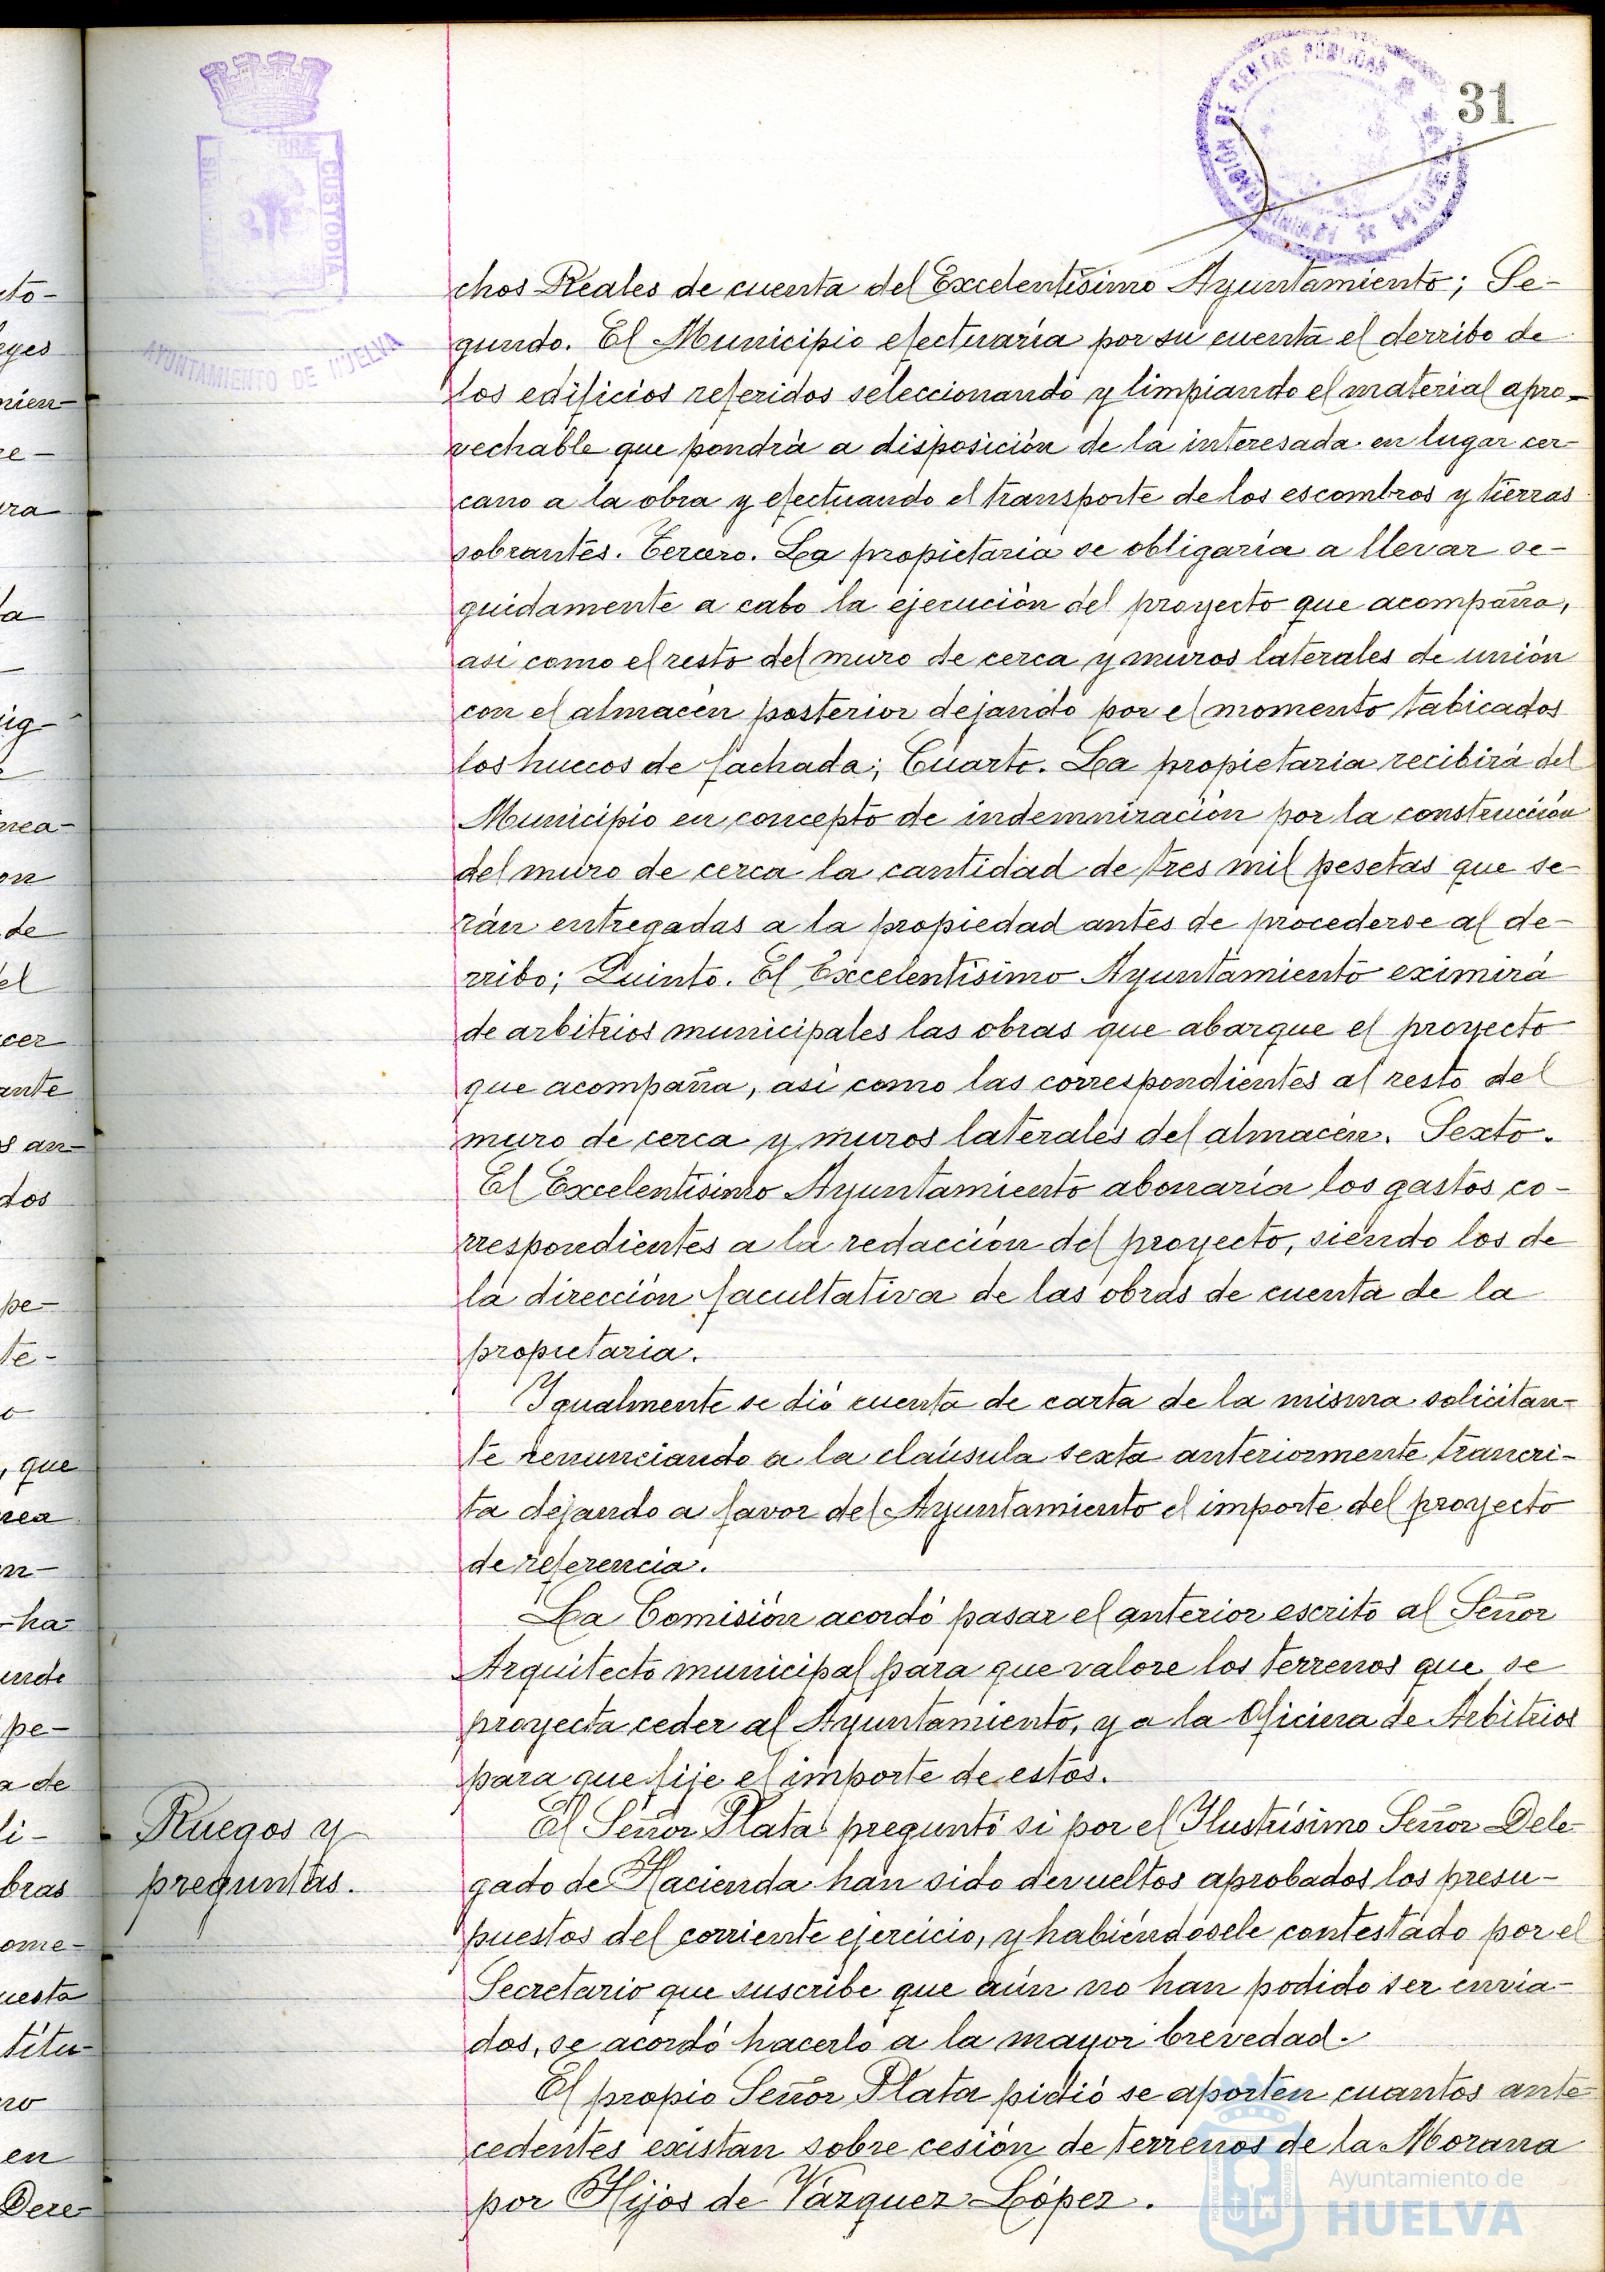 31
AYUNTAMIENTO DE HUELVA
CUSTODIA
chos Reales de cuenta del Excelentísimo Ayuntamiento; Se-
gundo. El Municipio efectuaría por su cuenta el derribo de
los edificios referidos seleccionando y limpiando el material apro-
vechable que pondrá a disposición de la interesada en lugar cer-
cano a la obra y efectuando el transporte de los escombros y tierras
sobrantes. Tercero. La propietaria se obligaría a llevar se-
guidamente a cabo la ejecución del proyecto que acompaña,
asi como el resto del muro de cerca y muros laterales de unión
con el almacén posterior dejando por el momento tabicados
los huecos de fachada; Cuarto. La propietaria recibirá del
Municipio en concepto de indemnización por la construcción
del muro de cerca la cantidad de tres mil pesetas que se-
rán entregadas a la propiedad antes de procederse al de-
rribo; Quinto. El Excelentísimo Ayuntamiento eximirá
de arbitrios municipales las obras que abarque el proyecto
que acompaña, asi como las correspondientes al resto del
muro de cerca y muros laterales del almacén. Sexto.
El Excelentísimo Ayuntamiento abonaría los gastos co-
rrespondientes a la redacción del proyecto, siendo los de
la dirección facultativa de las obras de cuenta de la
propietaria.
Igualmente se dió cuenta de carta de la misma solicitan-
te renunciando a la claúsula sexta anteriormente trancri-
ta dejando a favor del Ayuntamiento el importe del proyecto
de referencia.
La Comisión acordó pasar el anterior escrito al Señor
Arquitecto municipal para que valore los terrenos que se
proyecta ceder al Ayuntamiento, y a la Oficina de Arbitrios
para que fije el importe de estos.
Ruegos y
preguntas.
El Señor Plata preguntó si por el Ilustrísimo Señor Dele-
gado de Hacienda han sido devueltos aprobados los presu-
puestos del corriente ejercicio, y habiéndosele contestado por el
Secretario que suscribe que aún no han podido ser envia-
dos, se acordó hacerlo a la mayor brevedad.
El propio Señor Plata pidió se aporten cuantos ante-
cedentes existan sobre cesión de terrenos de la Morana
por Hijos de Vázquez López.
Ayuntamiento de
HUELVA